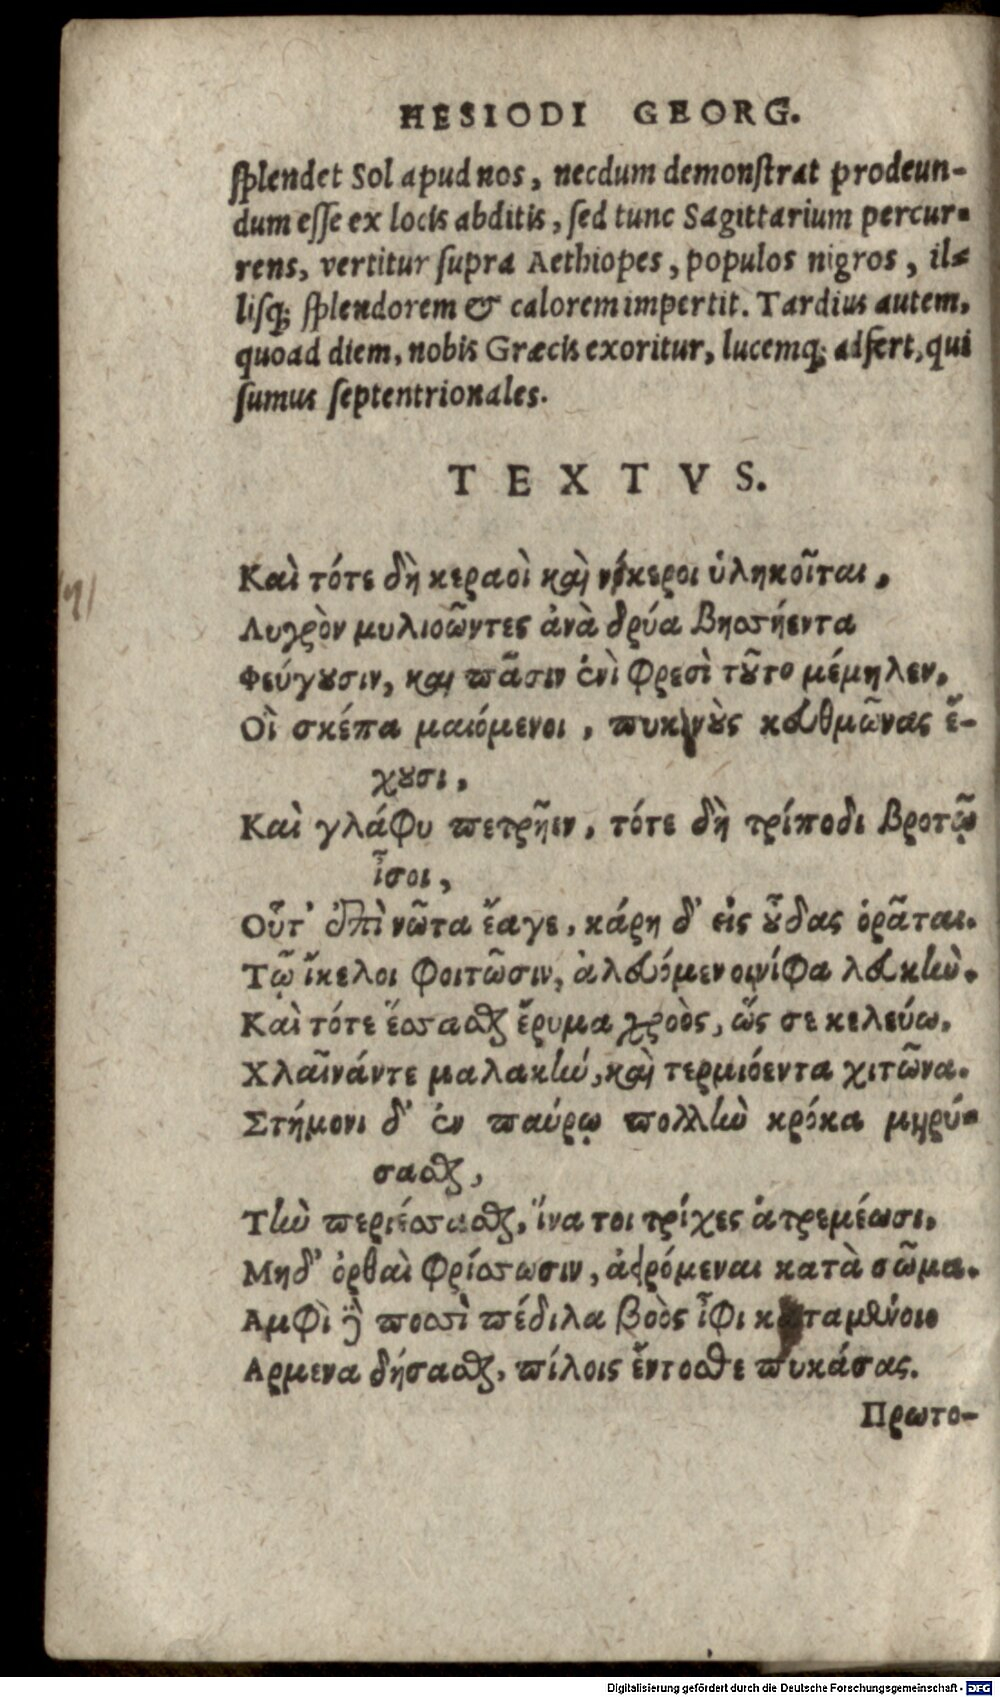 HESIODI GEORG.
splendet Sol apud nos, necdum demonstrat prodeun-
dum esse ex locis abditis, sed tunc Sagittarium percur-
rens, vertitur supra Aethiopes, populos nigros, il-
lisq; splendorem & calorem impertit. Tardius autem,
quoad diem, nobis Græcis exoritur, lucemq; adfert, qui
sumus septentrionales.
TEXTVS.
Καὶ τότε δὴ κεραοὶ καὶ νήκεροι ὑληκοῖται,
Λυγρὸν μυλιοῶντες ἀνὰ δρύα βησσήεντα
Φεύγουσιν, καὶ πᾶσιν ἐνὶ φρεσὶ τοῦτο μέμηλεν,
Οἳ σκέπα μαιόμενοι, πυκινοὺς κευθμῶνας ἔ-
χουσι,
Καὶ γλάφυ πετρῆεν, τότε δὴ τρίποδι βροτῷ
ἶσοι,
Οὗτ' ἐπὶ νῶτα ἔαγε, κάρη δ' εἰς οὖδας ὁρᾶται.
Τῷ ἴκελοι φοιτῶσιν, ἀλευόμενοι νίφα λευκήν.
Καὶ τότε ἕσσασθαι ἔρυμα χροὸς, ὥς σε κελεύω,
Χλαῖνάν τε μαλακήν, καὶ τερμιόεντα χιτῶνα.
Στήμονι δ' ἐν παύρῳ πολλὴν κρόκα μηρύ-
σασθαι,
Τὴν περιέσσασθαι, ἵνα τοι τρίχες ἀτρεμέωσι,
Μηδ' ὀρθαὶ φρίσσωσιν, ἀειρόμεναι κατὰ σῶμα.
Αμφὶ δὲ ποσσὶ πέδιλα βοὸς ἶφι κταμένοιο
Αρμενα δήσασθαι, πίλοις ἔντοσθε πυκάσας.
Πρωτο-
Digitalisierung gefördert durch die Deutsche Forschungsgemeinschaft - DFG